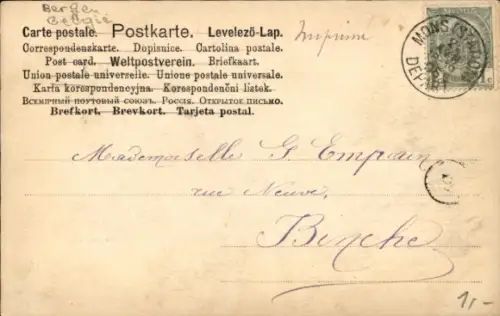 Bergen
Belgie
Carte postale. Postkarte. Levelező-Lap.
Correspondenzkarte. Dopisnice. Cartolina postale.
Post card. Weltpostverein. Briefkaart.
Union postale universelle. Unione postale universale.
Karta korespondencyjna. Korespondenční lístek.
Всемірный почтовый союзъ. Россія. Открытое письмо.
Brefkort. Brevkort. Tarjeta postal.
Imprimé
MONS (STATION)
DEPART
Mademoiselle G. Empain
rue Neuve,
Binche
1,-